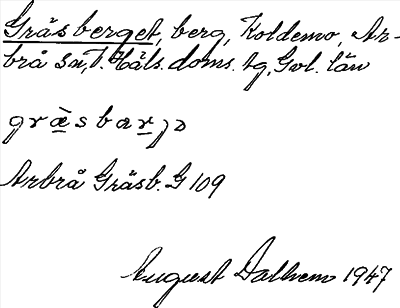 Gräsberget, berg, Koldemo, Ar-
brå sn, V. Häls. doms. tg, Gvl. län
Arbrå Gräsb. G 109
August Dalhem 1947